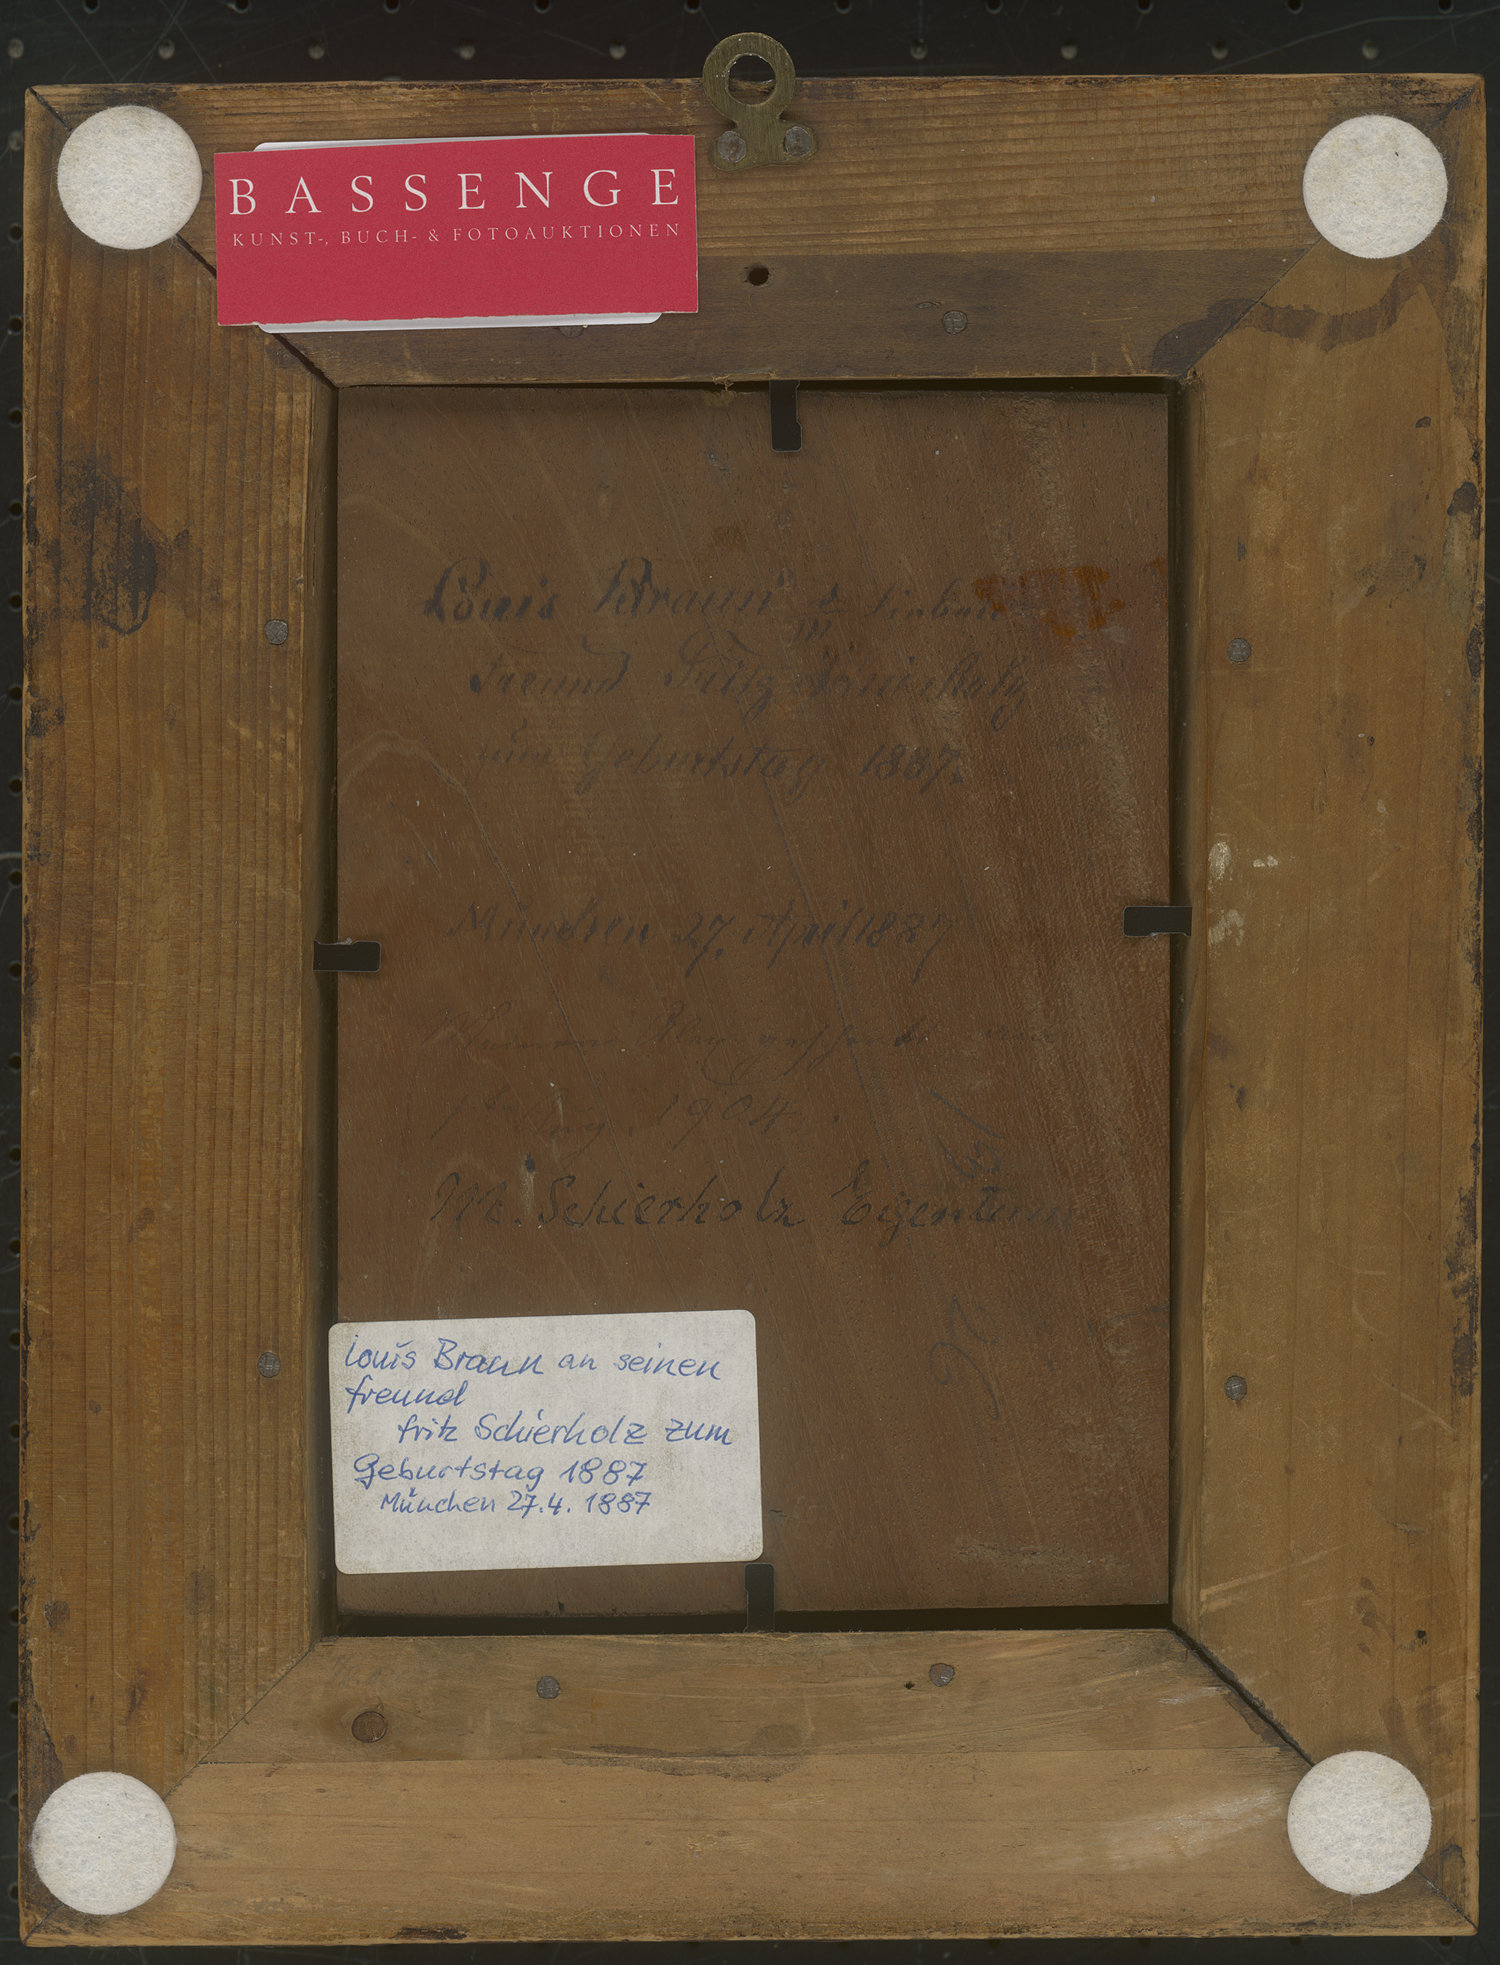 BASSENGE
KUNST-, BUCH- & FOTOAUKTIONEN
Louis Braun s. lieben
Freund Fritz Schierholz
zum Geburtstag 1887.
München 27. April 1887
1904.
M. Schierholz Eigentum
Louis Braun an seinen
freund
fritz Schierholz zum
Geburtstag 1887
München 27.4. 1887